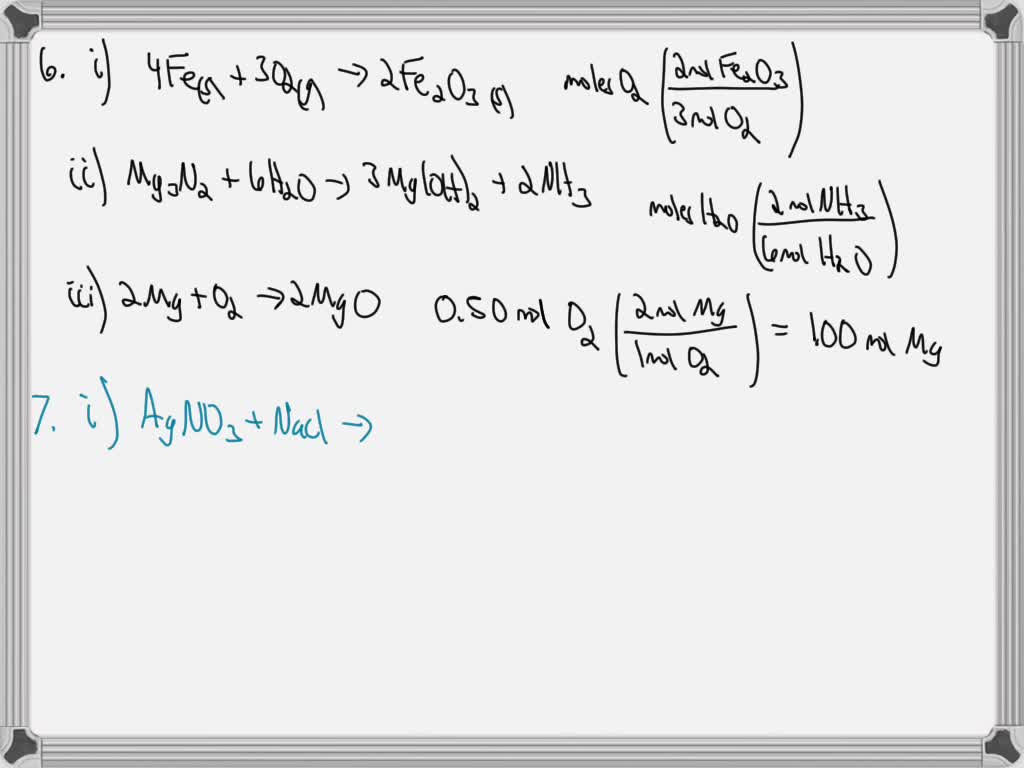 6. i) 4Fe(s) + 3O2(g) → 2Fe2O3 (s) moles O2 (2 mol Fe2O3 / 3 mol O2)
ii) Mg3N2 + 6H2O → 3Mg(OH)2 + 2NH3 moles H2O (2 mol NH3 / 6 mol H2O)
iii) 2Mg + O2 → 2MgO 0.50 mol O2 (2 mol Mg / 1 mol O2) = 1.00 mol Mg
7. i) AgNO3 + NaCl →